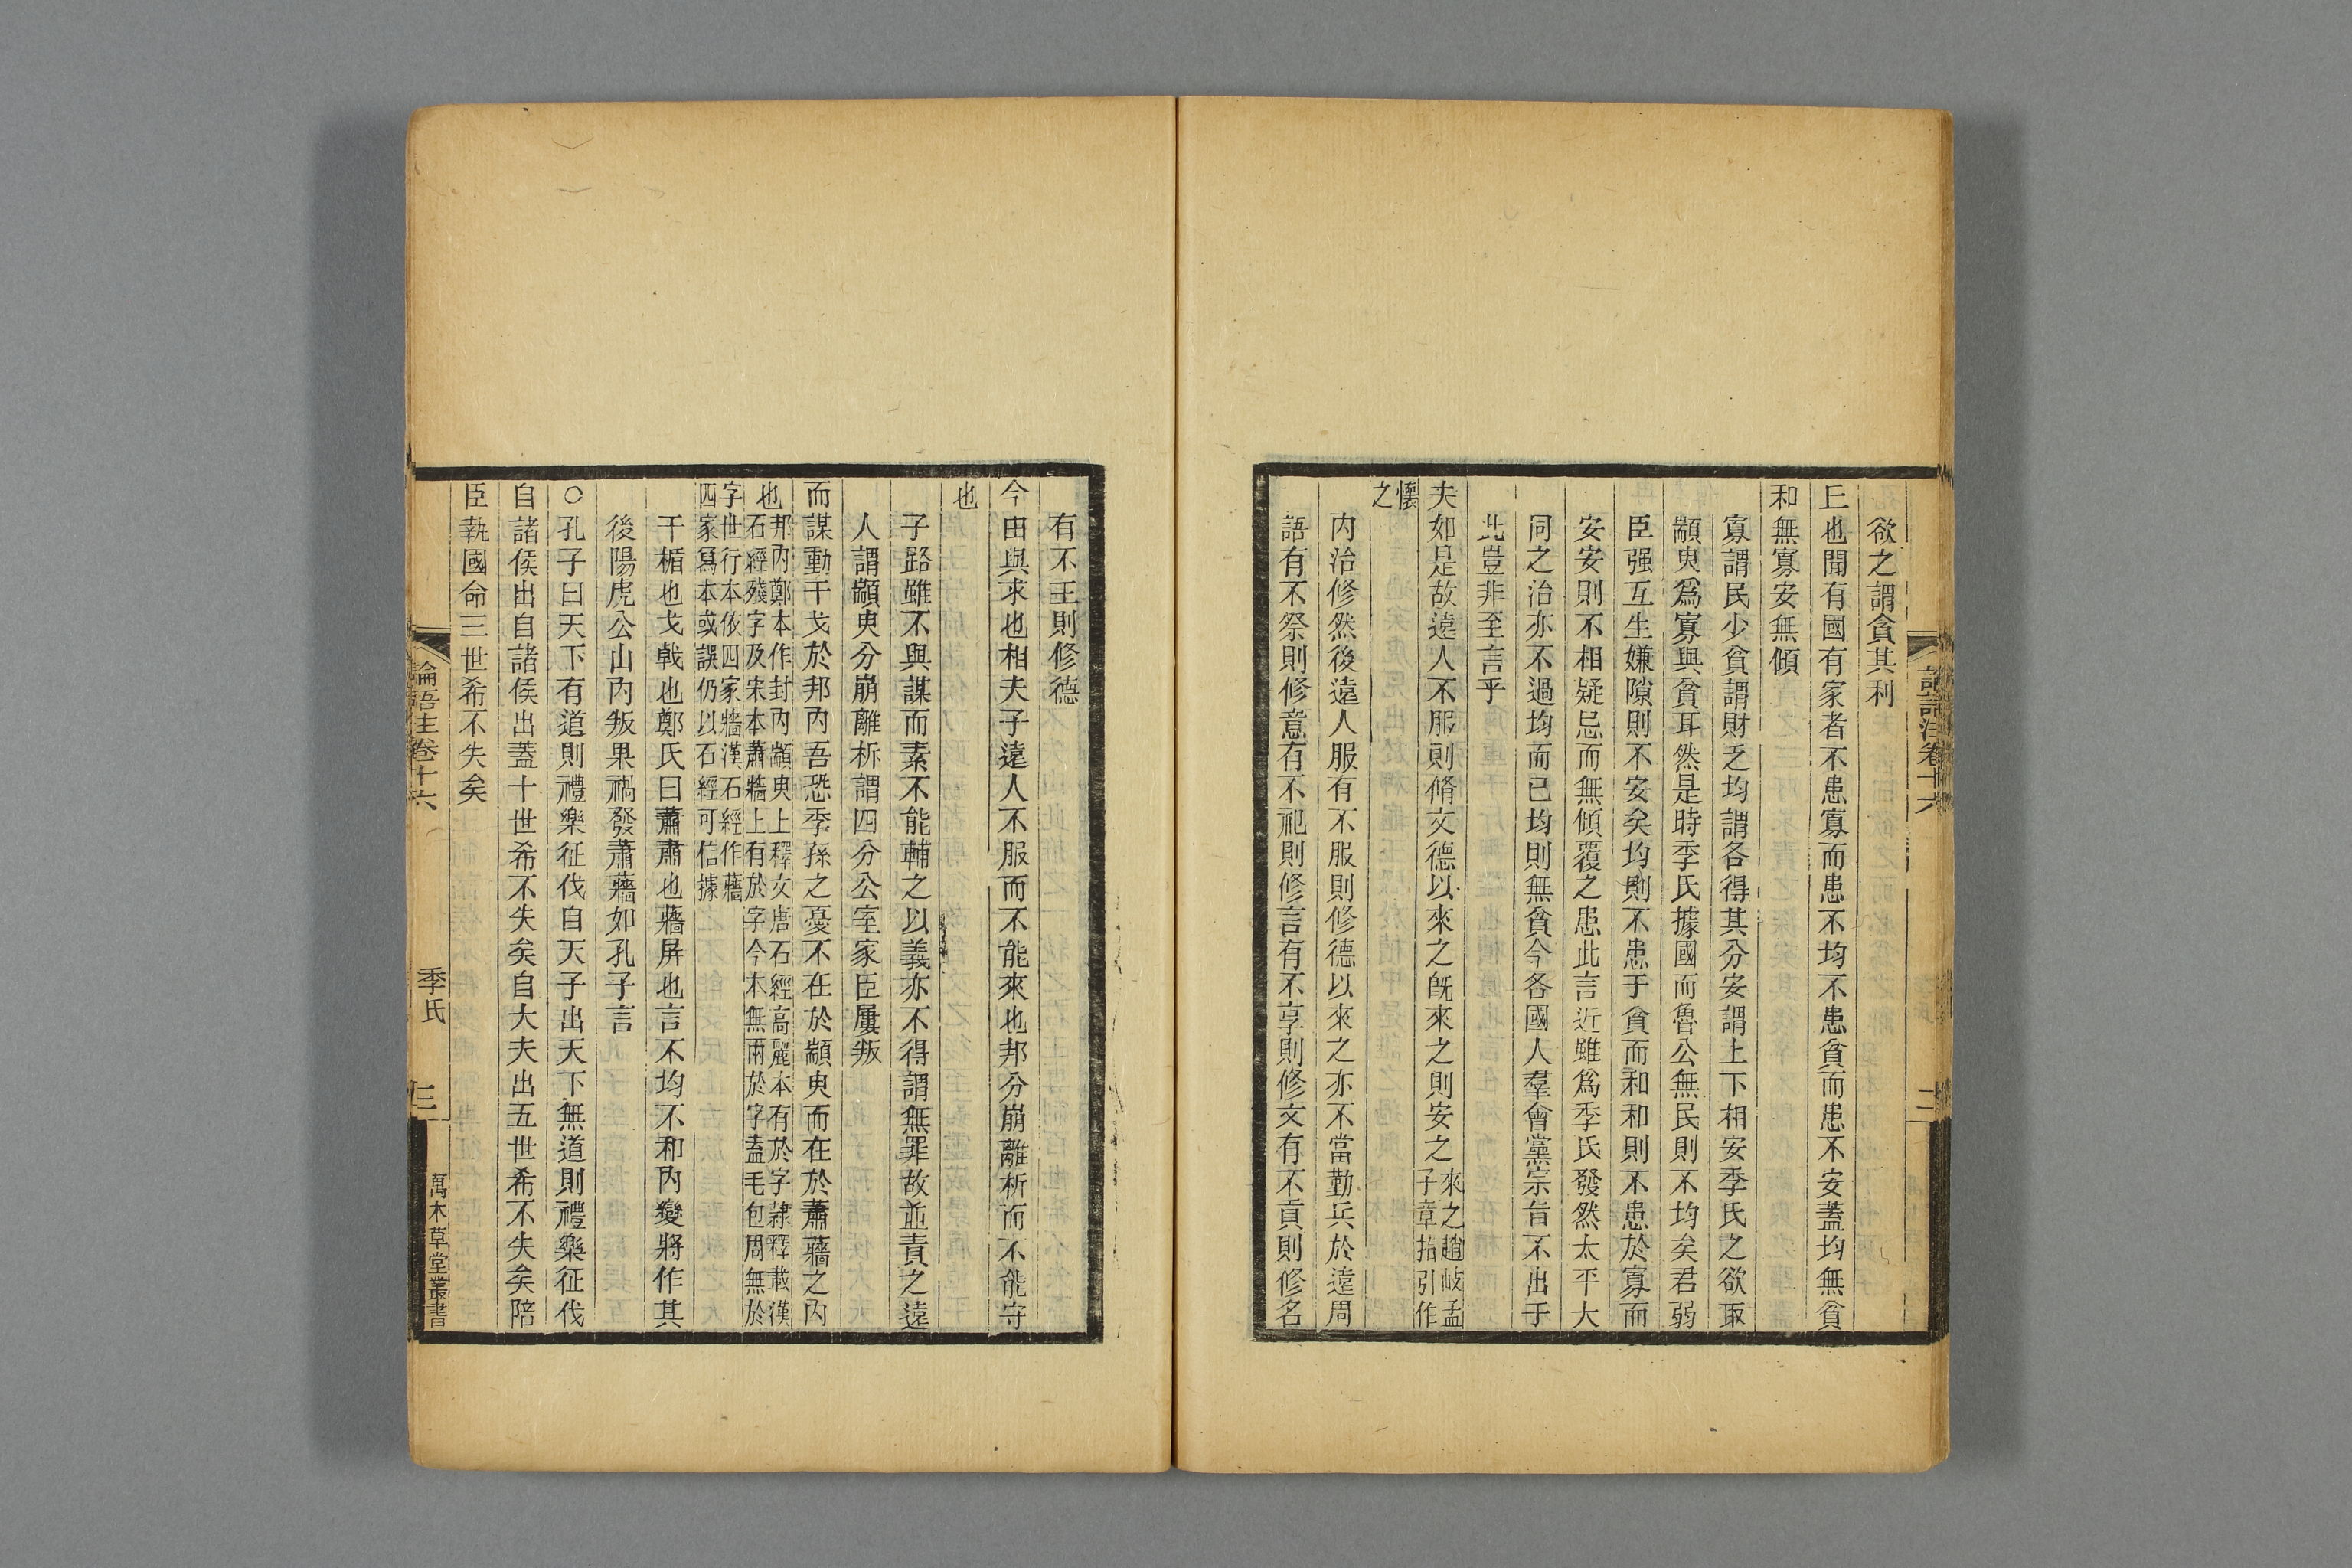 欲之謂貪其利
丘也聞有國有家者不患寡而患不均不患貧而患不安蓋均無貧
和無寡安無傾
寡謂民少貧謂財乏均謂各得其分安謂上下相安季氏之欲取
顓臾爲寡與貧耳然是時季氏據國而魯公無民則不均矣君弱
臣强互生嫌隙則不安矣均則不患于貧而和和則不患於寡而
安安則不相疑忌而無傾覆之患此言近雖爲季氏發然太平大
同之治亦不過均而已均則無貧今各國人羣會黨宗旨不出于
此豈非至言乎
夫如是故遠人不服則脩文德以來之旣來之則安之來之趙岐孟
子章指引作
懷
之
內治修然後遠人服有不服則修德以來之亦不當勤兵於遠周
語有不祭則修意有不祀則修言有不享則修文有不貢則修名
論語注卷十六
二
有不王則修德
今由與求也相夫子遠人不服而不能來也邦分崩離析而不能守
也
子路雖不與謀而素不能輔之以義亦不得謂無罪故並責之遠
人謂顓臾分崩離析謂四分公室家臣屢叛
而謀動干戈於邦內吾恐季孫之憂不在於顓臾而在於蕭牆之內
也邦內鄭本作封內顓臾上釋文唐石經高麗本有於字隷釋載漢
石經殘字及宋本蕭牆上有於字今本無兩於字盍毛包周無於
字世行本依四家牆漢石經作牆
四家寫本或誤仍以石經可信據
干楯也戈戟也鄭氏曰蕭肅也牆屏也言不均不和內變將作其
後陽虎公山內叛果禍發蕭牆如孔子言
○孔子曰天下有道則禮樂征伐自天子出天下無道則禮樂征伐
自諸侯出自諸侯出蓋十世希不失矣自大夫出五世希不失矣陪
臣執國命三世希不失矣
論語注卷十六
季氏
三
萬木草堂叢書